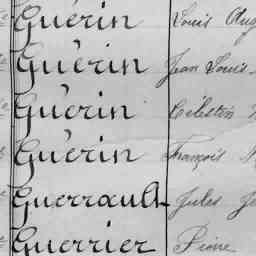 Guérin Louis Aug
Guérin Jean Louis
Guérin Célestin
Guérin François
Guerrault Jules
Guerrier Pierre